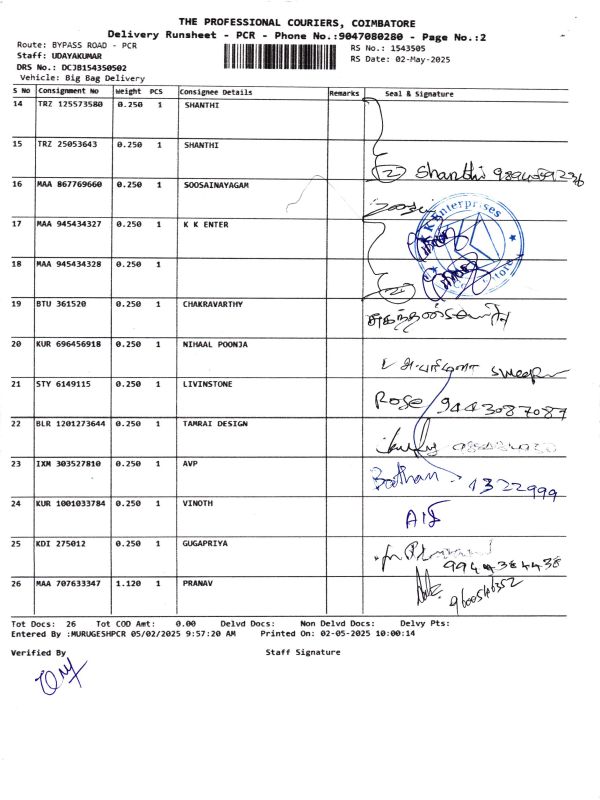 THE PROFESSIONAL COURIERS, COIMBATORE
Delivery Runsheet - PCR - Phone No.:9047080280 - Page No.:2
Route: BYPASS ROAD - PCR RS No.: 1543505
Staff: UDAYAKUMAR RS Date: 02-May-2025
DRS No.: DCJB154350502
Vehicle: Big Bag Delivery
S No Consignment No Weight PCS Consignee Details Remarks Seal & Signature
14 TRZ 125573580 0.250 1 SHANTHI
15 TRZ 25053643 0.250 1 SHANTHI
2 Shanthi
16 MAA 867769660 0.250 1 SOOSAINAYAGAM
17 MAA 945434327 0.250 1 K K ENTER
K K Enterprises
18 MAA 945434328 0.250 1
2
19 BTU 361520 0.250 1 CHAKRAVARTHY
20 KUR 696456918 0.250 1 NIHAAL POONJA
sweeper
21 STY 6149115 0.250 1 LIVINSTONE
Rose 9443087087
22 BLR 1201273644 0.250 1 TAMRAI DESIGN
23 IXM 303527810 0.250 1 AVP
1322999
24 KUR 1001033784 0.250 1 VINOTH
25 KDI 275012 0.250 1 GUGAPRIYA
9944384438
26 MAA 707633347 1.120 1 PRANAV
Tot Docs: 26 Tot COD Amt: 0.00 Delvd Docs: Non Delvd Docs: Delvy Pts:
Entered By :MURUGESHPCR 05/02/2025 9:57:20 AM Printed On: 02-05-2025 10:00:14
Verified By Staff Signature